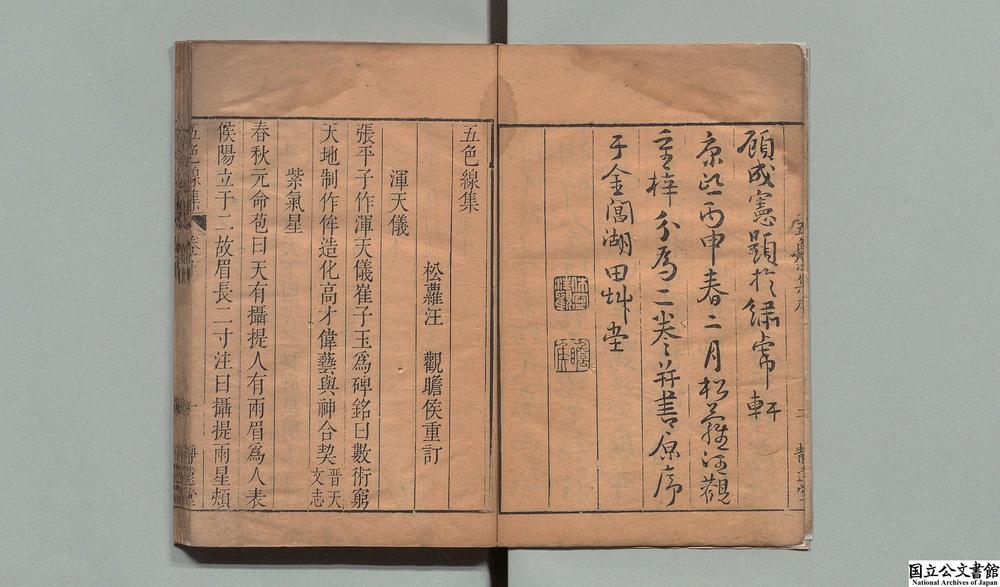 顧成憲題於繡常軒
康熙丙申春二月松蘿汪觀
重梓分爲二卷并書原序
于金閶湖田艸堂
五色線集
松蘿汪　觀瞻侯重訂
渾天儀
張平子作渾天儀崔子玉爲碑銘曰數術窮
天地制作侔造化高才偉藝與神合契晋天文志
紫氣星
春秋元命苞曰天有攝提人有兩眉爲人表
候陽立于二故眉長二寸注曰攝提兩星頰
五色線集
靜遠堂
国立公文書館
National Archives of Japan